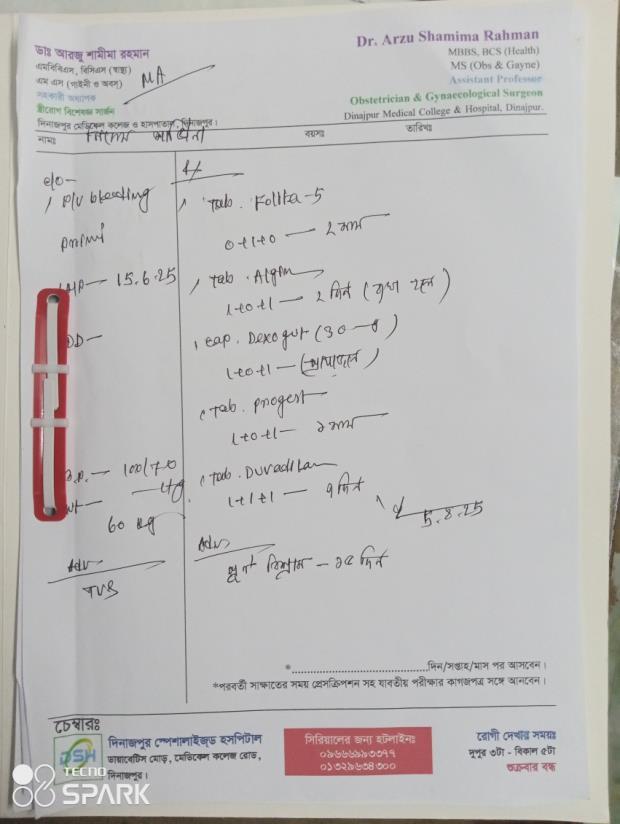 ডাঃ আরজু শামীমা রহমান
এমবিবিএস, বিসিএস (স্বাস্থ্য)
এম এস (গাইনী ও অবস্)
সহকারী অধ্যাপক
স্ত্রীরোগ বিশেষজ্ঞ সার্জন
দিনাজপুর মেডিকেল কলেজ ও হাসপাতাল, দিনাজপুর।
Dr. Arzu Shamima Rahman
MBBS, BCS (Health)
MS (Obs & Gayne)
Assistant Professor
Obstetrician & Gynaecological Surgeon
Dinajpur Medical College & Hospital, Dinajpur.
নামঃ
বয়সঃ
তারিখঃ
c/o-
P/V bleeding
LMP- 15.6.25
DD-
B.P.- 100/70
60 kg
Adv
TVS
Rx
Tab. Folita-5
0+1+0 — ২ মাস
Tab. Algin
1+0+1 — ২ দিন (ব্যথা হলে)
Cap. Dexogut (30)
1+0+1
Tab. Progest
1+0+1 — ১ মাস
Tab. Duvadilan
1+1+1 — ৭ দিন
5.8.25
Adv
পূর্ণ বিশ্রাম - ১৫ দিন
*..............................দিন/সপ্তাহ/মাস পর আসবেন।
*পরবর্তী সাক্ষাতের সময় প্রেসক্রিপশন সহ যাবতীয় পরীক্ষার কাগজপত্র সঙ্গে আনবেন।
চেম্বারঃ
DSH
দিনাজপুর স্পেশালাইজড হসপিটাল
ডায়াবেটিস মোড়, মেডিকেল কলেজ রোড,
দিনাজপুর।
সিরিয়ালের জন্য হটলাইনঃ
০৯৬৬৬৯৯৩৩৭৭
০১৩২৯৬৩৪৩০০
রোগী দেখার সময়ঃ
দুপুর ৩টা - বিকাল ৫টা
শুক্রবার বন্ধ
TECNO
SPARK